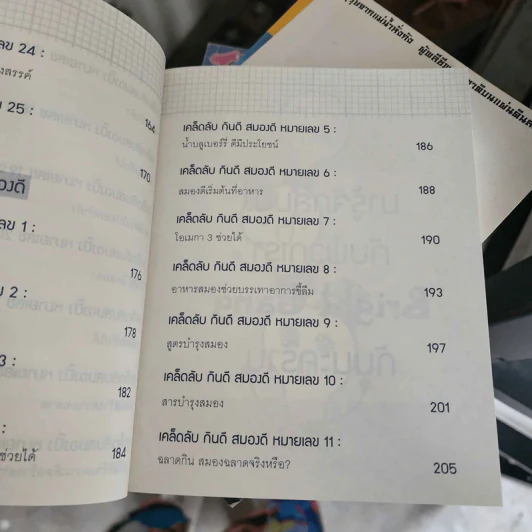 ลข 24 :
งสรรค์
164
25 :
170
องดี
ลข 1 :
176
ข 2 :
178
3 :
182
:
ช่วยได้ 184
เคล็ดลับ กินดี สมองดี หมายเลข 5 :
น้ำบลูเบอร์รี ดีมีประโยชน์ 186
เคล็ดลับ กินดี สมองดี หมายเลข 6 :
สมองดีเริ่มต้นที่อาหาร 188
เคล็ดลับ กินดี สมองดี หมายเลข 7 :
โอเมกา 3 ช่วยได้ 190
เคล็ดลับ กินดี สมองดี หมายเลข 8 :
อาหารสมองช่วยบรรเทาอาการขี้ลืม 193
เคล็ดลับ กินดี สมองดี หมายเลข 9 :
สูตรบำรุงสมอง 197
เคล็ดลับ กินดี สมองดี หมายเลข 10 :
สารบำรุงสมอง 201
เคล็ดลับ กินดี สมองดี หมายเลข 11 :
ฉลาดกิน สมองฉลาดจริงหรือ? 205